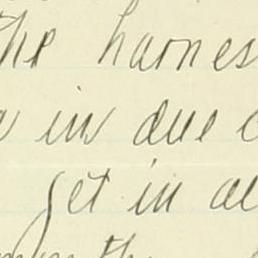 the harnes
in due c
get in al